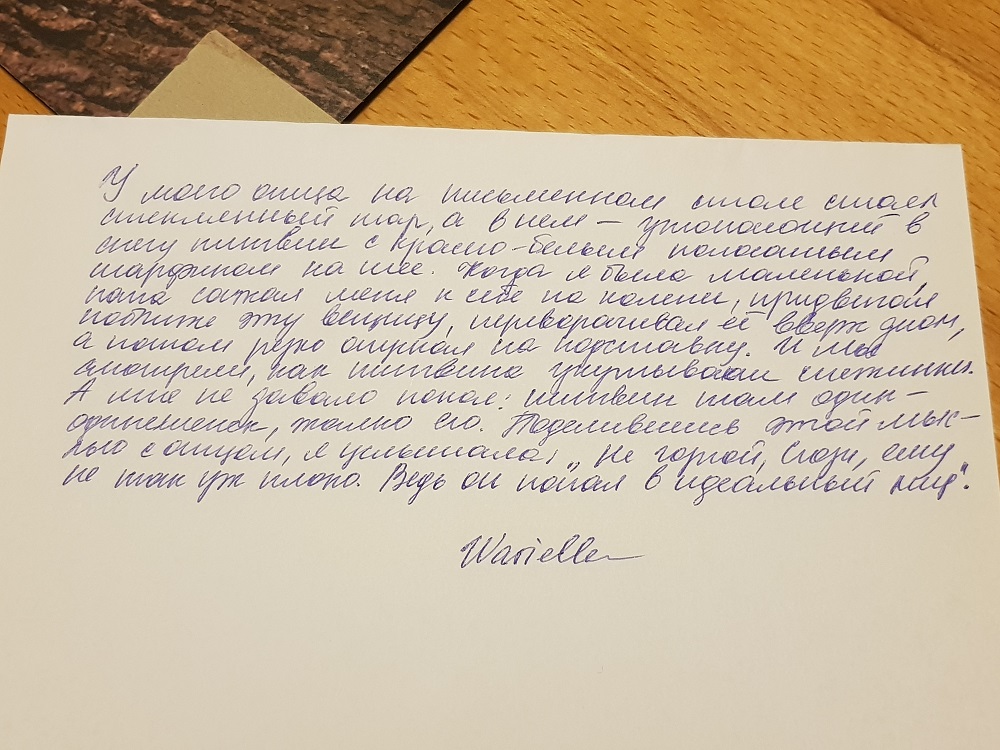 У моего отца на письменном столе стоял
стеклянный шар, а в нем — утопающий в
снегу пингвин с красно-белым полосатым
шарфиком на шее. Когда я была маленькой,
папа сажал меня к себе на колени, придвигал
поближе эту вещицу, переворачивал её вверх дном,
а потом резко опускал на подставку. И мы
смотрели, как пингвина укутывают снежинки.
А мне не давало покоя: пингвин там один-
одинешенек, жалко его. Поделившись этой мыс-
лью с отцом, я услышала: „Не горюй, Сюзи, ему
не так уж плохо. Ведь он попал в идеальный мир".